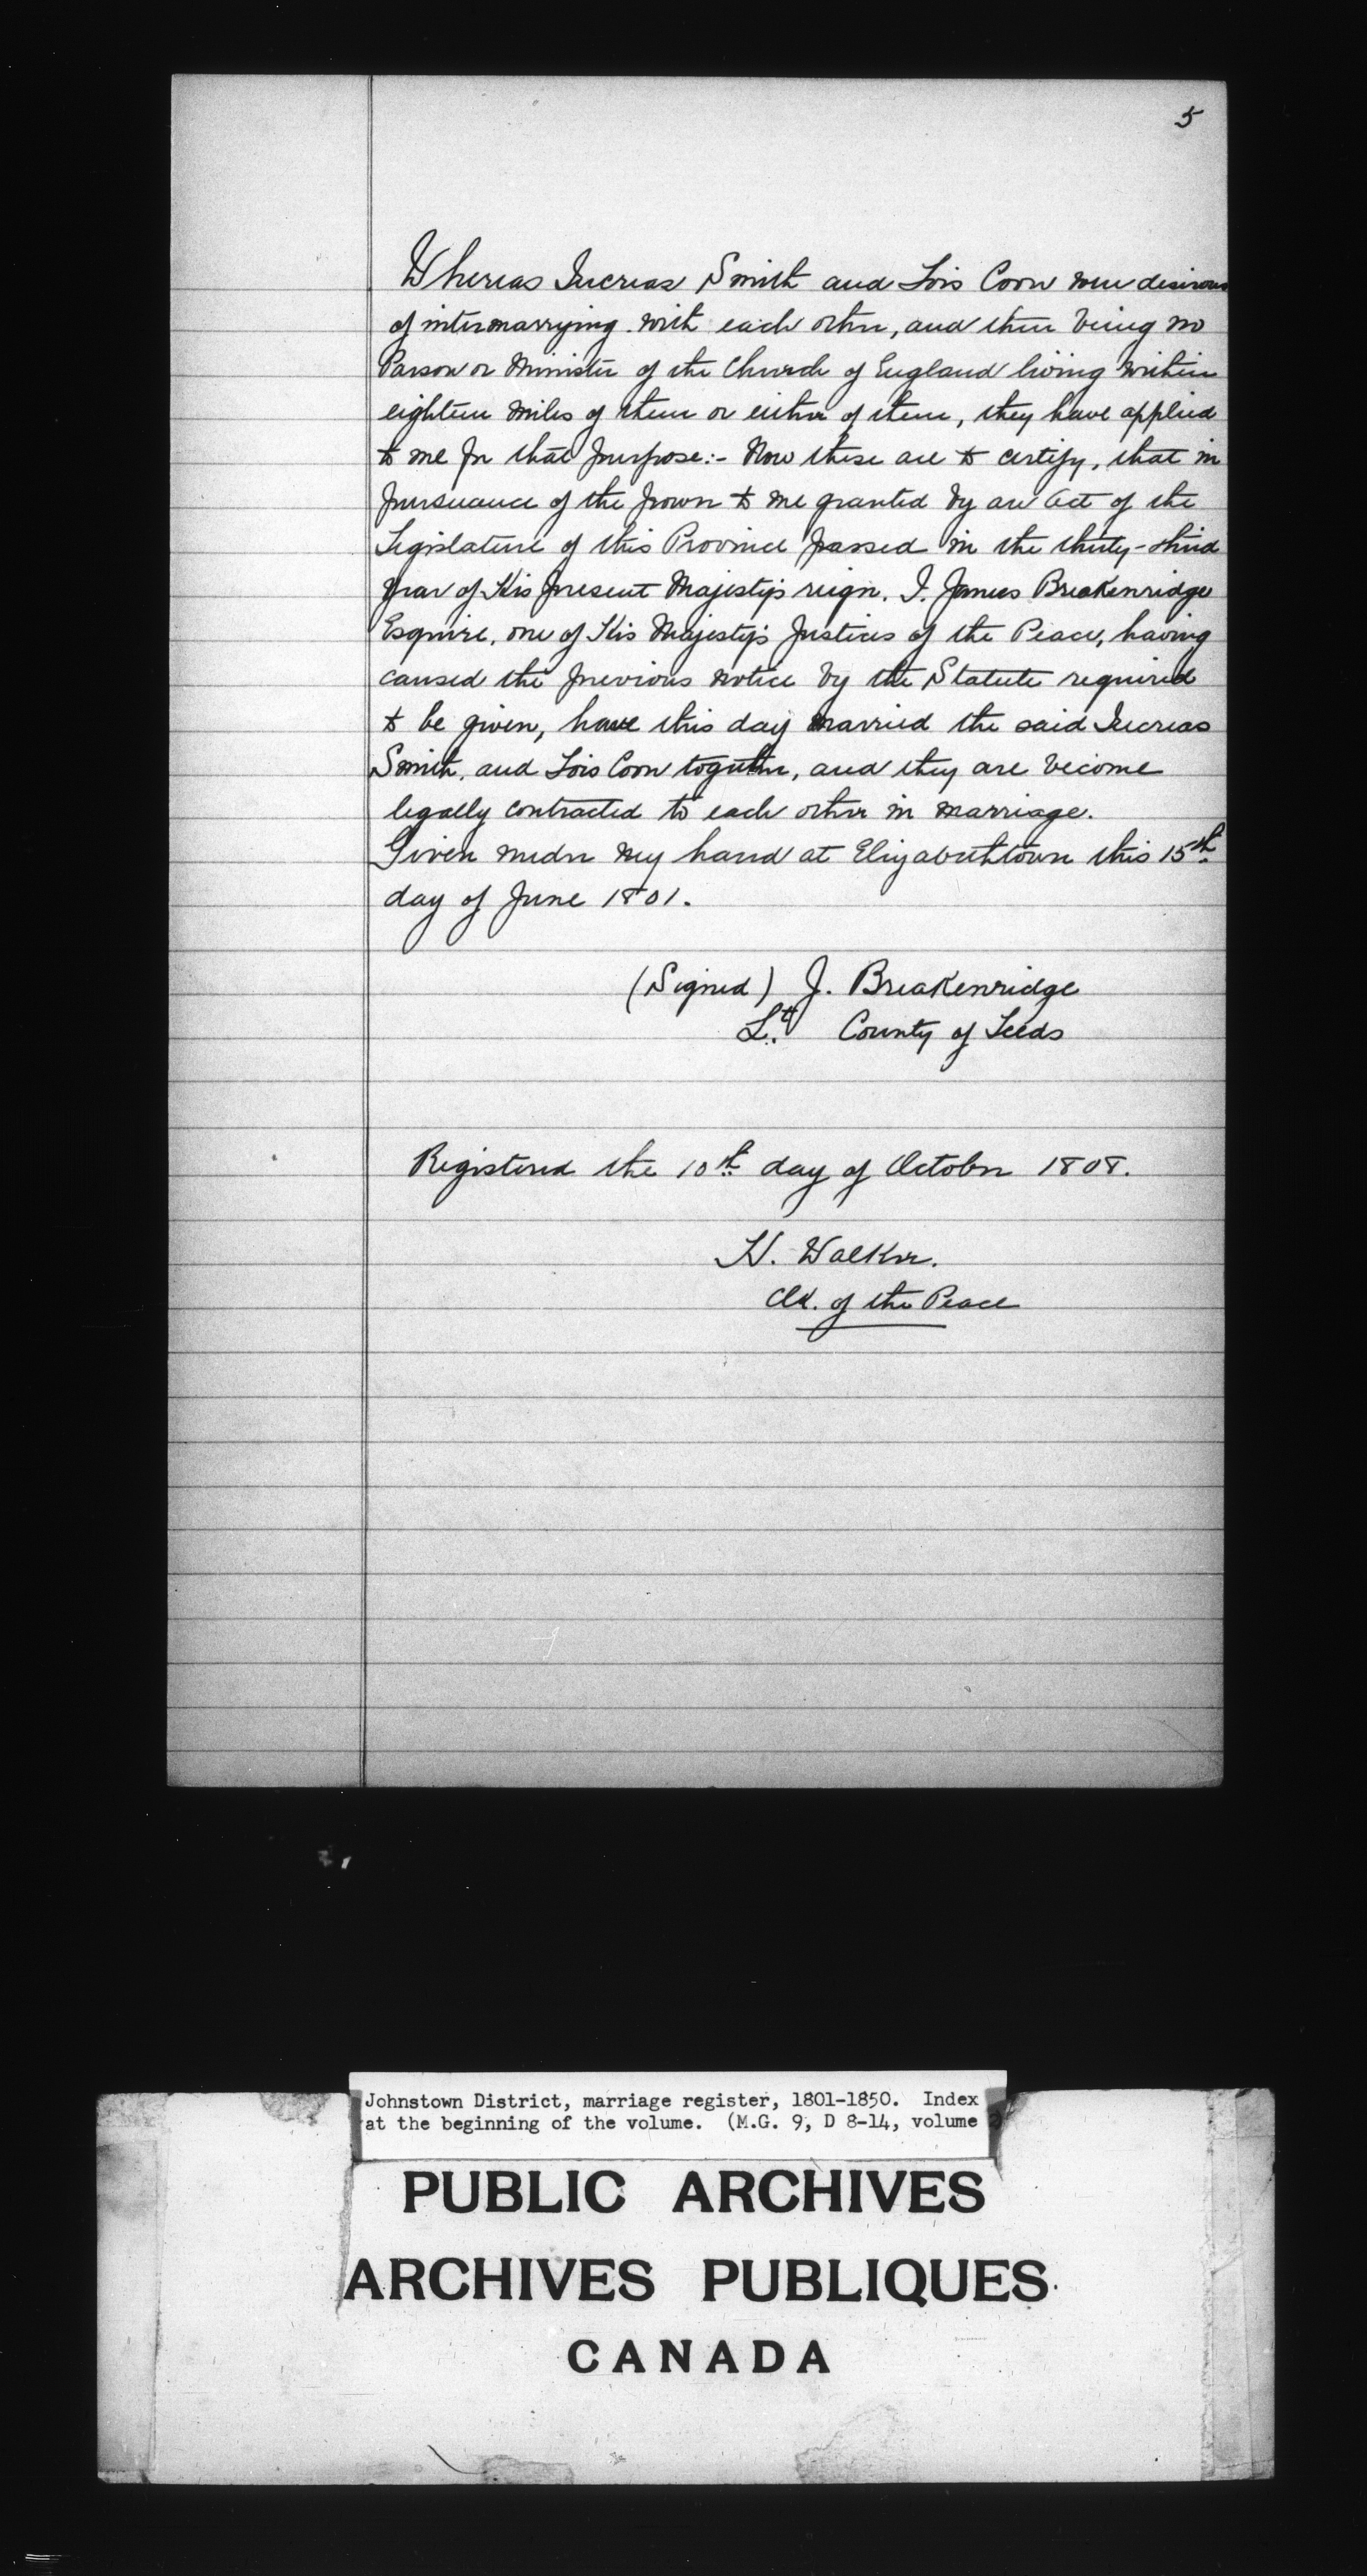 5
Whereas Increas Smith and Lois Coon were desirous
of intermarrying with each other, and there being no
Parson or Minister of the Church of England living within
eighteen miles of them or either of them, they have applied
to me for that purpose:- Now these are to certify, that in
pursuance of the power to me granted by an Act of the
Legislature of this Province passed in the thirty-third
year of His present Majesty's reign. I. James Breakenridge
Esquire, one of His Majesty's Justices of the Peace, having
caused the previous notice by the Statute required
to be given, have this day married the said Increas
Smith, and Lois Coon together, and they are become
legally contracted to each other in marriage.
Given under my hand at Elizabethtown this 15th
day of June 1801.
(Signed) J. Breakenridge
Lt. County of Leeds
Registered the 10th day of October 1808.
H. Walker.
Clk. of the Peace
Johnstown District, marriage register, 1801-1850. Index
at the beginning of the volume. (M.G. 9, D 8-14, volume
PUBLIC ARCHIVES
ARCHIVES PUBLIQUES
CANADA